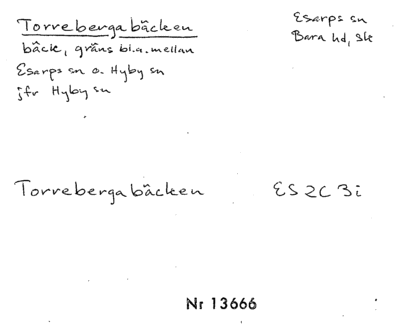 Torrebergabäcken
bäck, gräns bl.a. mellan
Esarps sn o. Hyby sn
jfr Hyby sn
Esarps sn
Bara hd, Sk
Torrebergabäcken
ES 2C 3i
Nr 13666